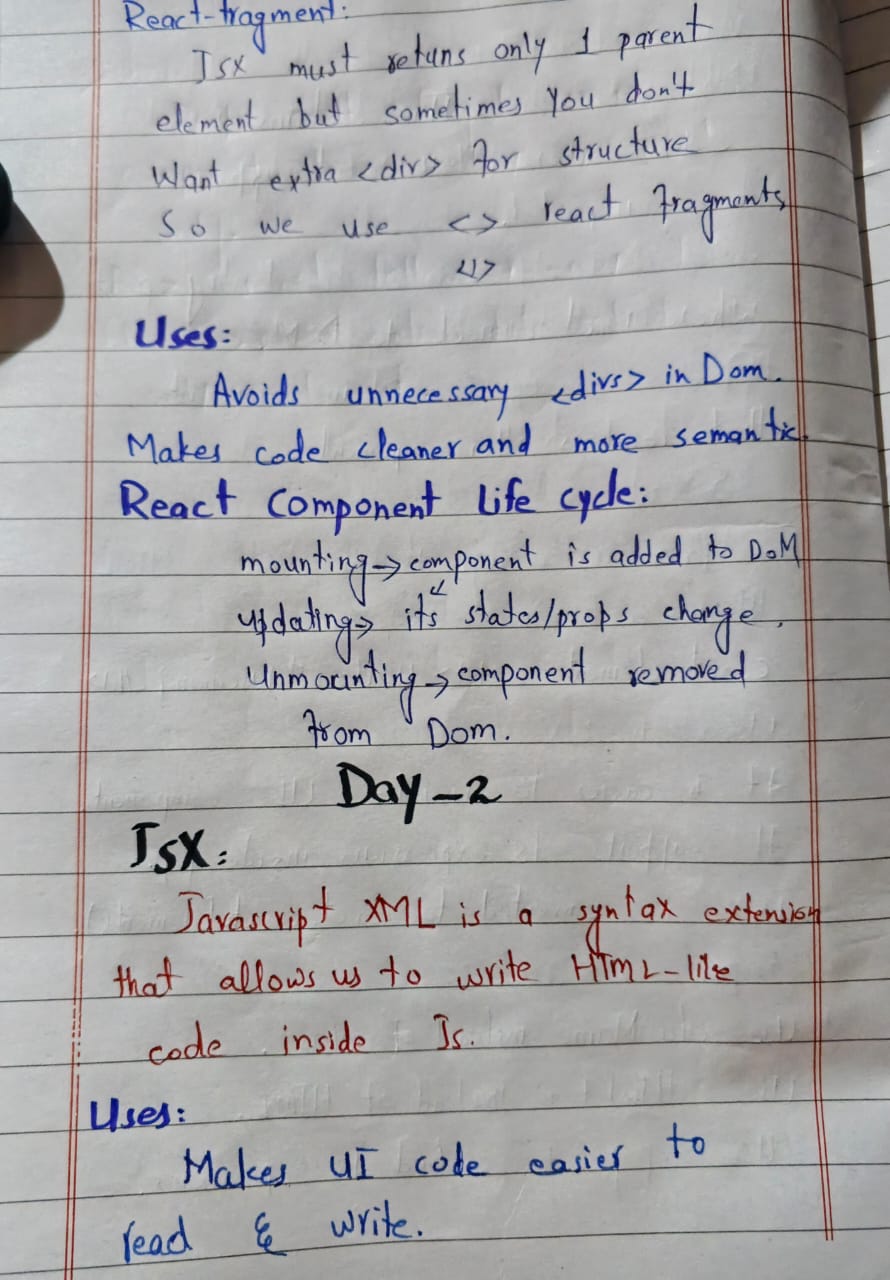 React-fragment:
Jsx must retuns only 1 parent
element but sometimes you don't
Want extra <div> for structure
So we use <> react fragments,
</>
Uses:
Avoids unnecessary <divs> in Dom.
Makes code cleaner and more semantic.
React Component Life cycle:
mounting→component is added to DoM
updating→ its states/props change.
Unmounting→component removed
from Dom.
Day-2
JsX:
Javascript XML is a syntax extension
that allows us to write HTmL-like
code inside Js.
Uses:
Makes UI code easier to
read & write.